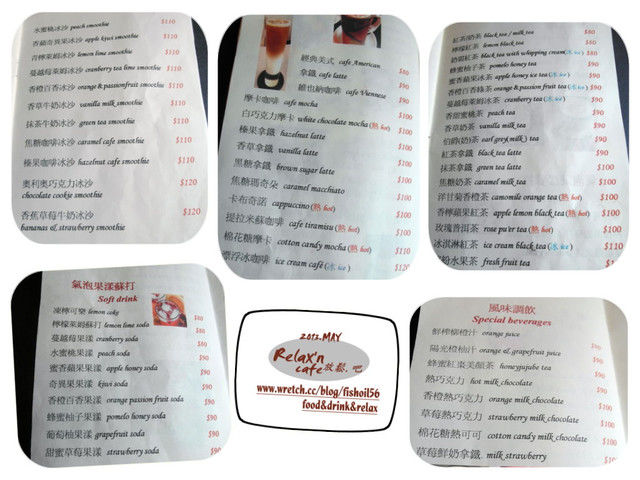 水蜜桃冰沙 peach smoothie $110
香蘋奇異果冰沙 apple kjwi smoothie $110
青檸萊姆冰沙 lemon lime smoothie $110
蔓越莓萊姆冰沙 cranberry tea lime smoothie $110
香橙百香冰沙 orange & passionfruit smoothie $110
香草牛奶冰沙 vanilla milk smoothie $110
抹茶牛奶冰沙 green tea smoothie $110
焦糖咖啡冰沙 caramel cafe smoothie $110
榛果咖啡冰沙 hazelnut cafe smoothie $110
奧利奧巧克力冰沙 $120
chocolate cookie smoothie
香蕉草莓牛奶冰沙 $120
bananas & strawberry smoothie
經典美式 cafe American $80
拿鐵 cafe latte $90
維也納咖啡 cafe Viennese $90
摩卡咖啡 cafe mocha $100
白巧克力摩卡 white chocolate mocha (熱 hot) $100
榛果拿鐵 hazelnut latte $100
香草拿鐵 vanilla latte $100
黑糖拿鐵 brown sugar latte $100
焦糖瑪奇朵 caramel macchiato $100
卡布奇諾 cappuccino (熱 hot) $100
提拉米蘇咖啡 cafe tiramisu (熱 hot) $100
棉花糖摩卡 cotton candy mocha (熱 hot) $110
漂浮冰咖啡 ice cream café (冰 ice)
紅茶/奶茶 black tea / milk tea $80
檸檬紅茶 lemon black tea $80
奶霜紅茶 black tea with whipping cream (冰 ice) $80
蜂蜜柚子茶 pomelo honey tea $90
蜜蘋果冰茶 apple honey ice tea (冰 ice) $90
香橙百香綠茶 orange & passion fruit tea (冰 ice) $90
蔓越莓萊姆冰茶 cranberry tea (冰 ice) $90
香甜蜜桃茶 peach tea $90
香草奶茶 vanilla milk tea $90
伯爵(奶)茶 earl grey( milk ) tea $90
紅茶拿鐵 black tea latte $100
抹茶拿鐵 green tea latte $100
焦糖奶茶 caramel milk tea $100
洋甘菊香橙茶 camomile orange tea (熱 hot) $100
香檸蘋果紅茶 apple lemon black tea (熱 hot) $100
玫瑰普洱茶 rose pu'er tea (熱 hot) $100
冰淇淋紅茶 ice cream black tea (冰 ice) $110
繽紛水果茶 fresh fruit tea
氣泡果漾蘇打
Soft drink
凍檸可樂 lemon coke $80
檸檬萊姆蘇打 lemon lime soda $80
蔓越莓果漾 cranberry soda $90
水蜜桃果漾 peach soda $90
蜜香蘋果果漾 apple honey soda $90
奇異果果漾 kjwi soda $90
香橙百香果漾 orange passion fruit soda $90
蜂蜜柚子果漾 pomelo honey soda $90
葡萄柚果漾 grapefruit soda $90
甜蜜草莓果漾 strawberry soda $90
2012.MAY
Relax'n
cafe 放鬆.吧
www.wretch.cc/blog/fishoil56
food&drink&relax
風味調飲
Special beverages
鮮榨柳橙汁 orange juice
陽光橙柚汁 orange & grapefruit juice $90
蜂蜜紅棗美顏茶 honeyjujube tea $90
熱巧克力 hot milk chocolate $90
香橙熱巧克力 orange milk chocolate $100
草莓熱巧克力 strawberry milk chocolate $100
棉花糖熱可可 cotton candy milk chocolate $100
草莓鮮奶拿鐵 milk strawberry $100